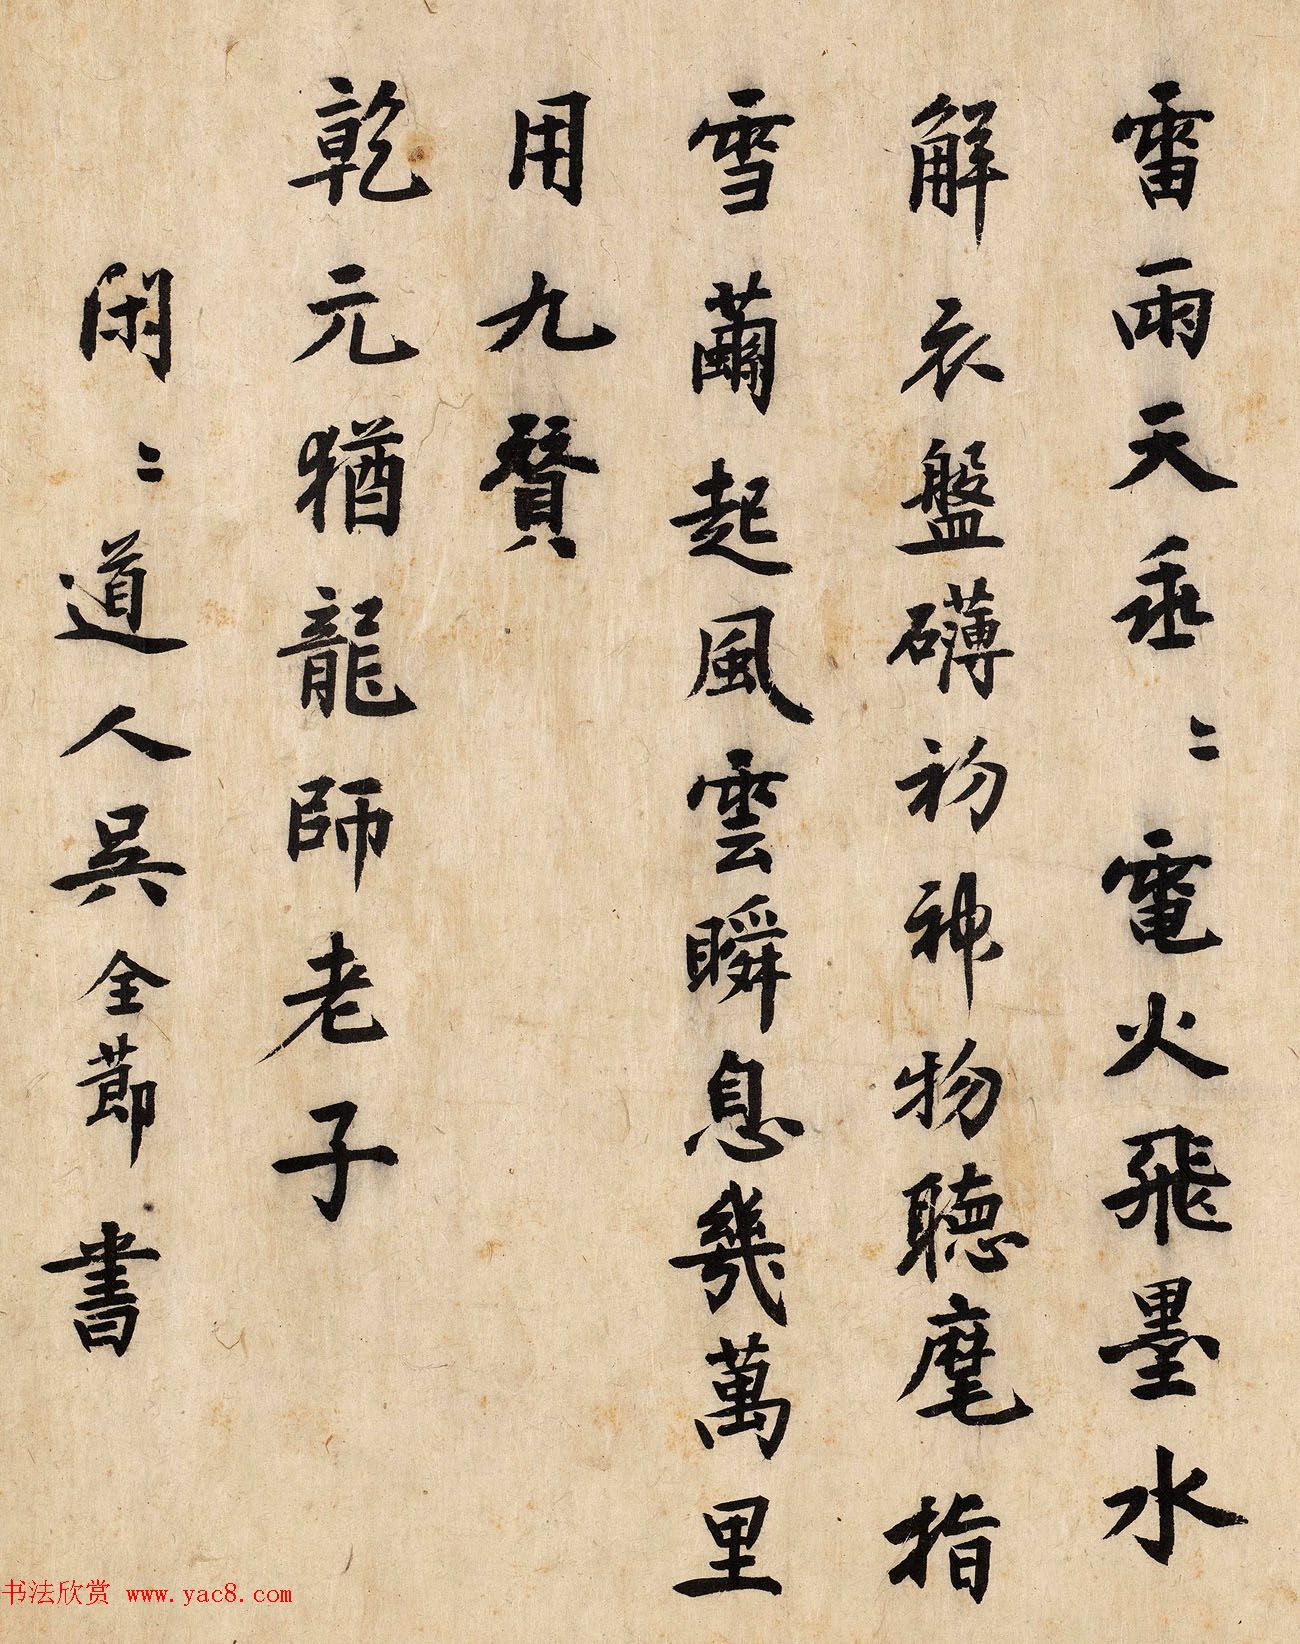 雷雨天垂〻電火飛墨水
解衣盤礴初神物聽麾指
雪繭起風雲瞬息幾萬里
用九贊
乾元猶龍師老子
閑〻道人吳全節書
书法欣赏 www.yac8.com